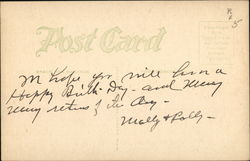 Post Card
M hope you will have a
Happy Birth Day - and Many
Many returns of the Day -
Molly & Polly -